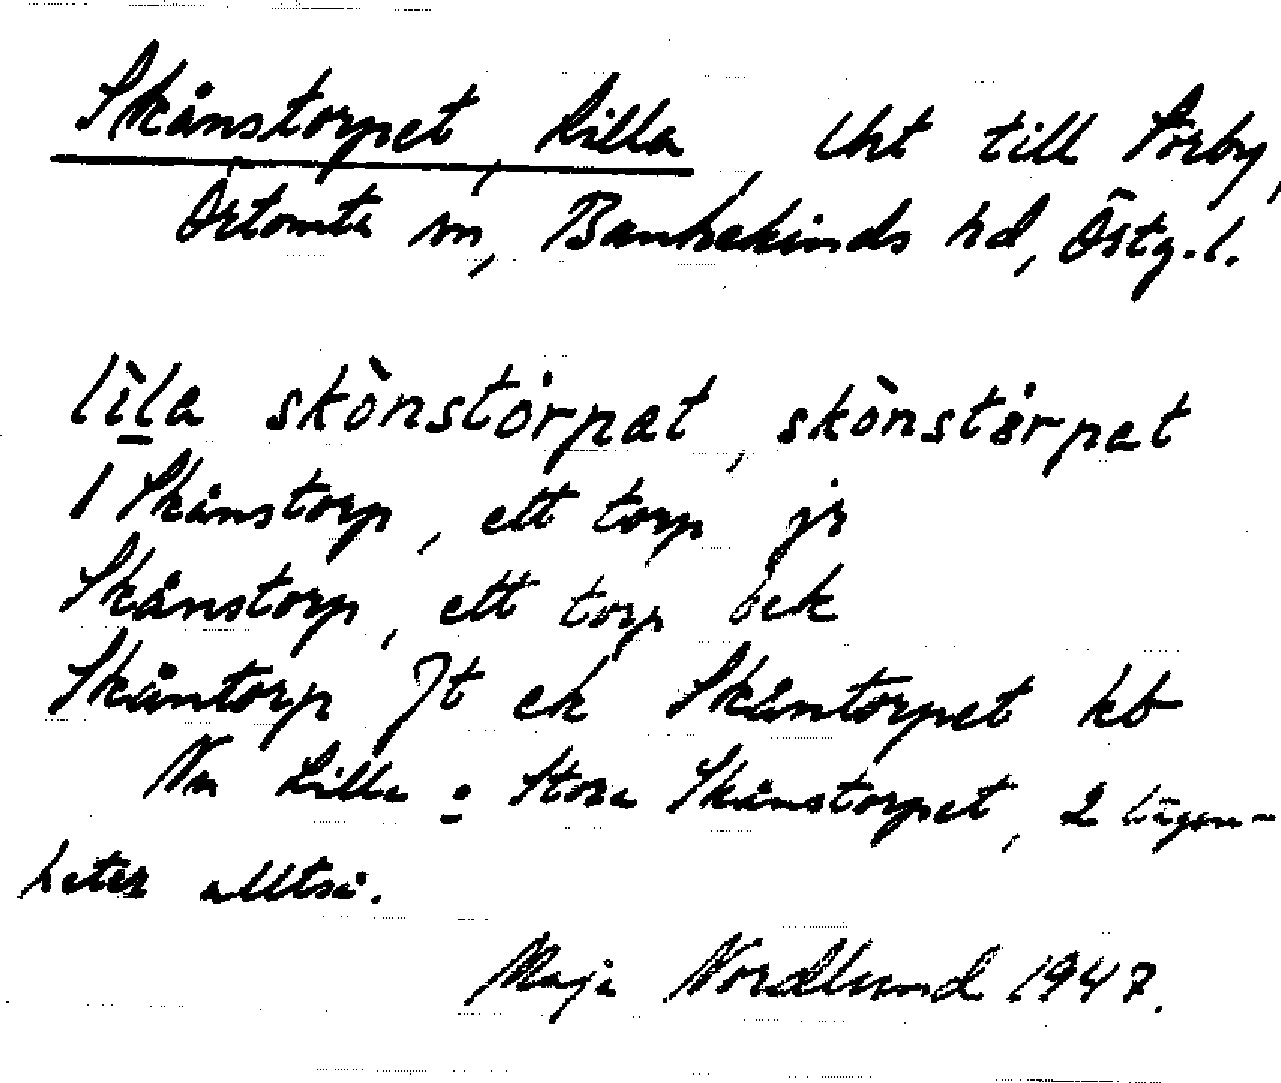 Skånstorpet, Lilla, Uht till Torby,
Örtomta sn, Bankekinds hd, Östg.l.
lìla skònstȯrpat, skònstȯrpet
1 Skånstorp, ett torp jr
Skånstorp, ett torp öek
Skåntorp Jt ek Skåntorpet kb
Nu Lilla o Stora Skånstorpet, 2 lägen-
heter alltså.
Maja Nordlund 1947.